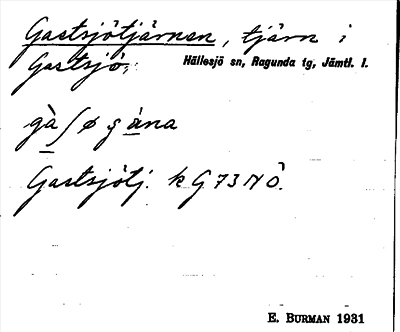 Gastsjötjärnen, tjärn i
Gastsjö, Hällesjö sn, Ragunda tg, Jämtl. l.
gàʃøʂäna
Gastsjötj. k G73NÖ.
E. BURMAN 1931